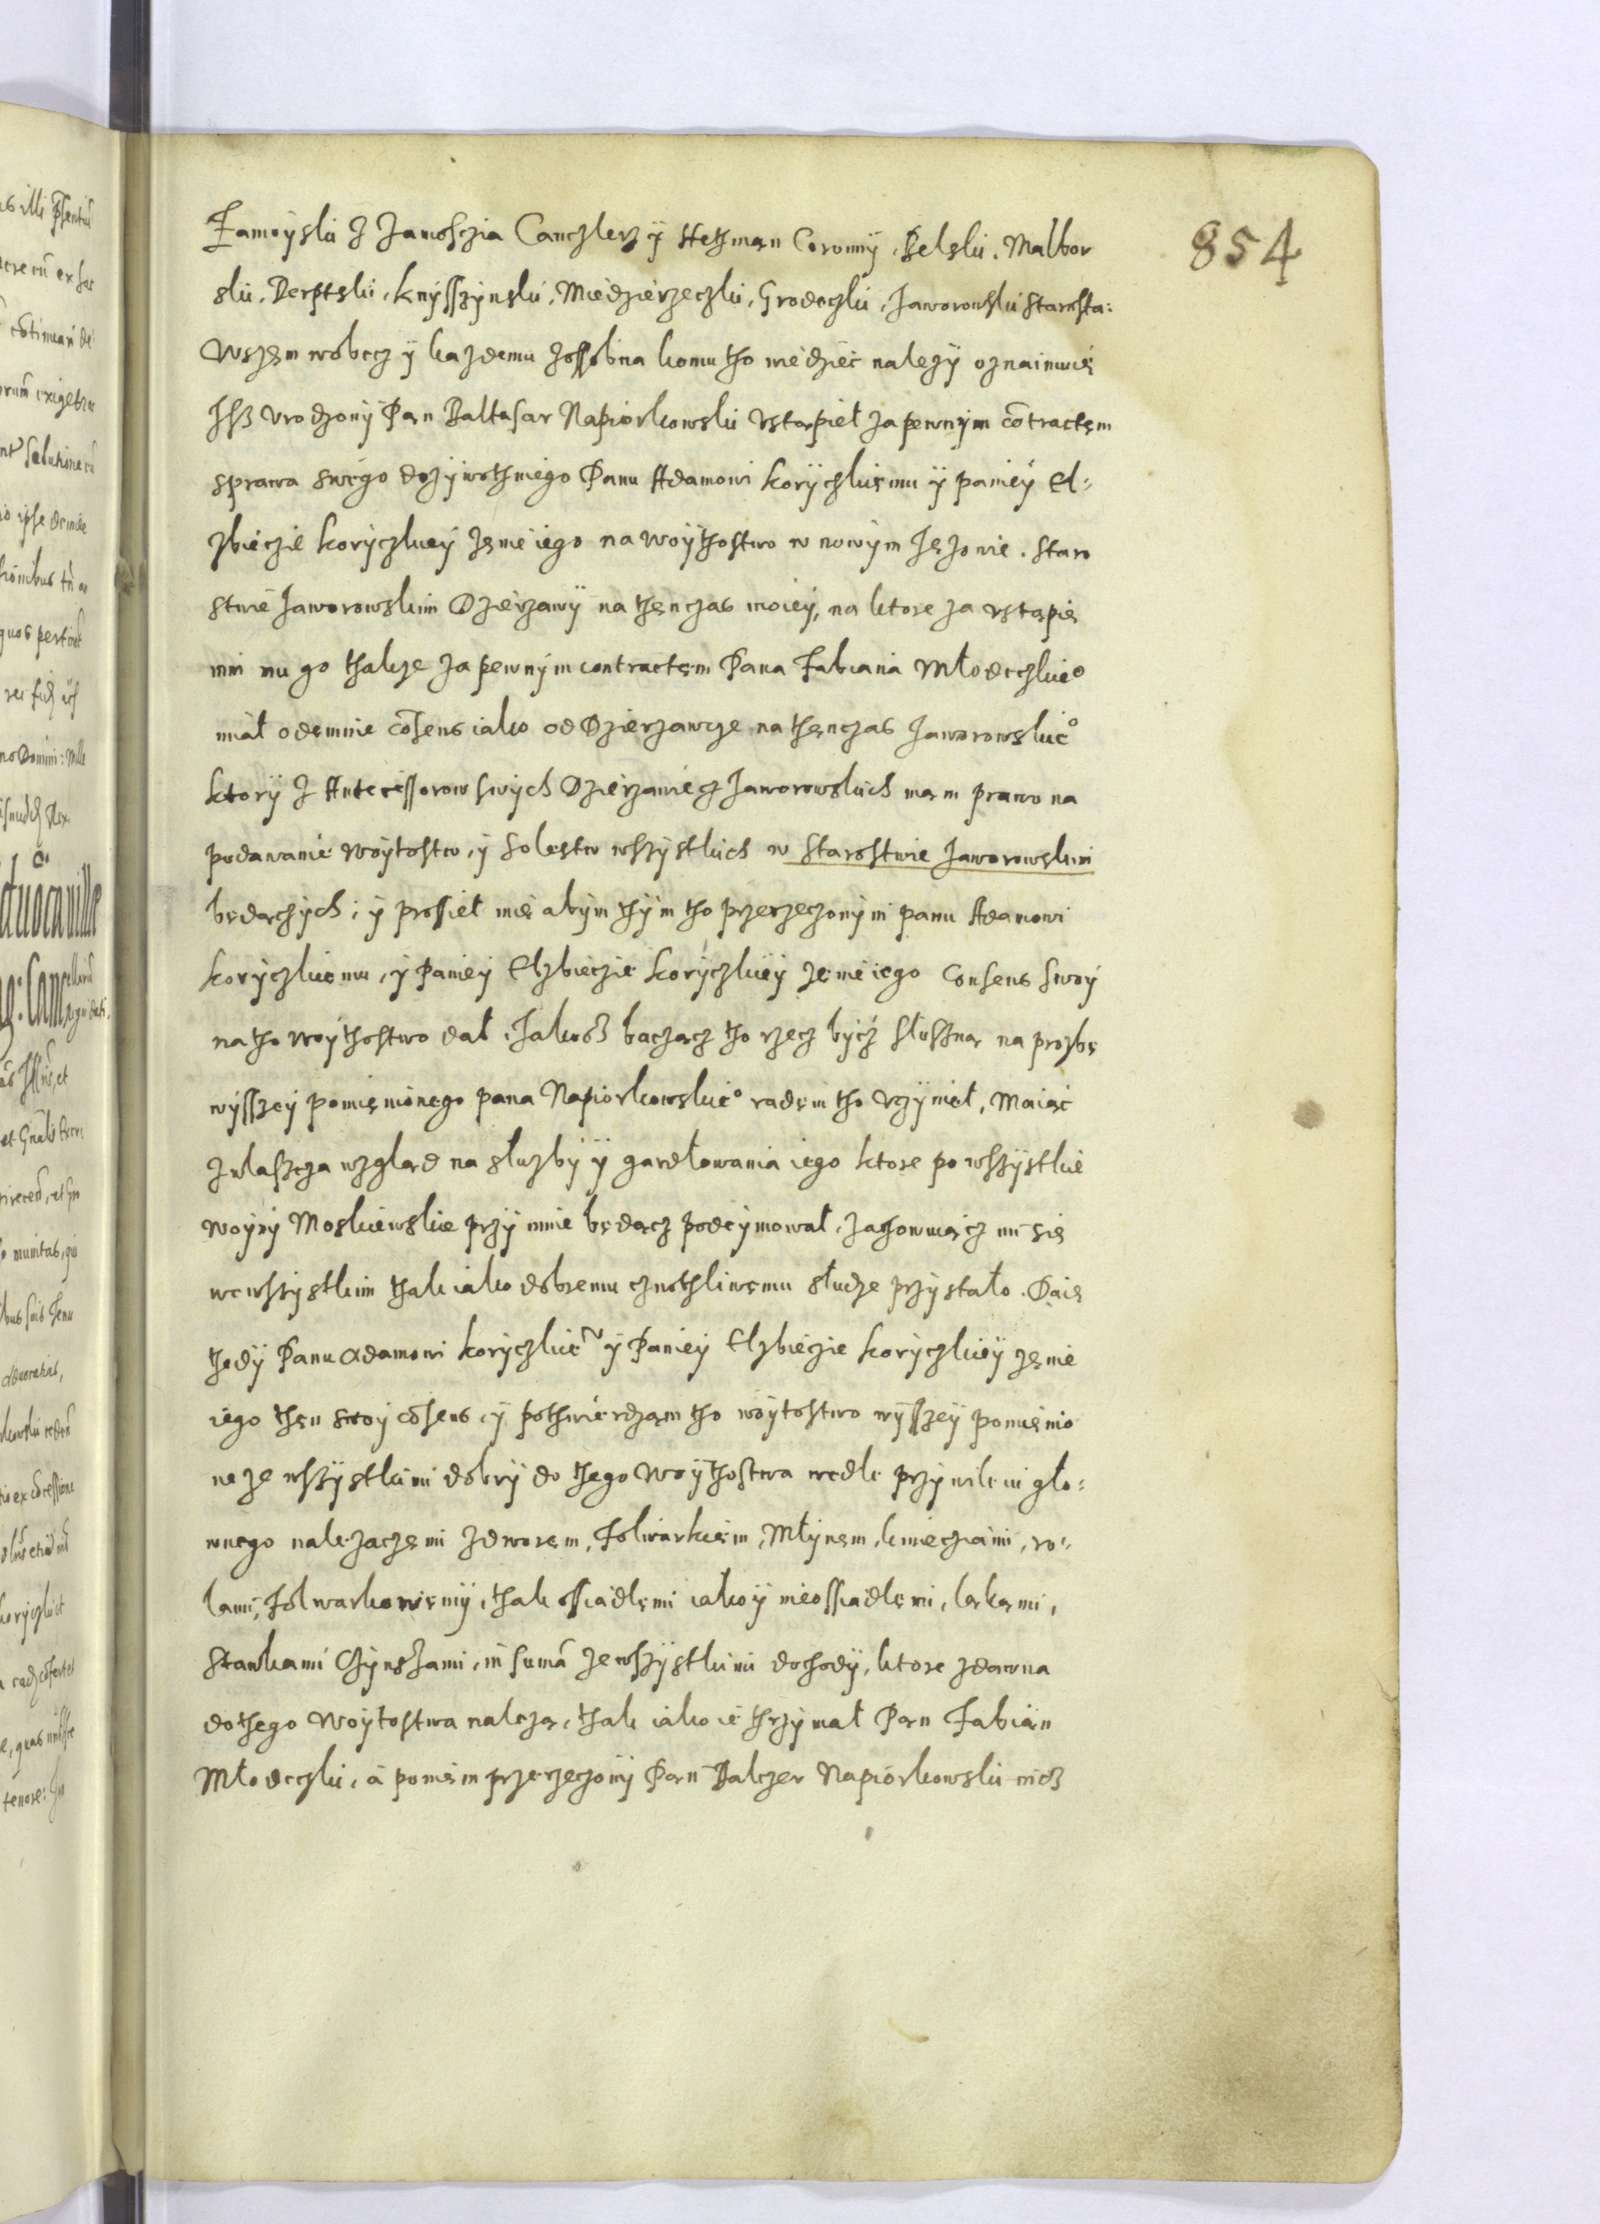 854
Zamoyski Z Zamosczia Canczlerz ÿ Hethman Coronnÿ, Belski, Malbor
ski, Derptski, Knÿsszÿnski, Miedzierzeczki, Grodeczki, Jaworowski Starosta:
Wszem wobecz ÿ kazdemu zossobna komu tho wiedziec nalezÿ oznaimuię
Jsz vrodzonÿ Pan Baltasar Napiorkowski vstąpieł za pewnÿm cōtractęm
sprawa swego dozÿwothniego Panu Adamowi Korÿczkięmu ÿ paniéÿ El-
zbieczie Korÿczkieÿ zęnie iego na woÿthostwo w nowÿm Jęzowie. Staro
stwie Jaworowskim Dzierzawÿ na thęnczas moieÿ, na ktore za vstąpię
nim mu go thakze za pewnÿm contractęm Pana Fabiana Młodeczkie°
miał odęmnie cōsens iako od Dzierzawcze na thęnczas Jaworowskie°
ktorÿ Z Antecessorow swÿch Dzierzawiecz Jaworowskich mam prawo na
podawanie woÿtostw, ÿ solestw wszÿstkich w Starostwie Jaworowskim
będączÿch, ÿ prosieł mię abÿm thÿm tho przerzeczonÿm panu Adamowi
Korÿczkięmu, ÿ Panieÿ Elzbieczie Korÿczkieÿ zęnie iego Consens swoÿ
na tho woÿthostwo dał, Jakosz bacząęcz tho rzecz bÿcz słuszną na prozbę
wÿsszeÿ pomięnionego pana Napiorkowskie° radęm tho vczÿnieł, Maiąc
zwłaszcza wzgląd na służbÿ ÿ gardłowania iego ktore po wszÿstkie
woÿnÿ Moskiewskie przÿ mnie będącz podeÿmował, zachowuiącz mi się
we wszÿstkim thak iako dobremu cznothliwęmu słudze przÿstało. Daię
thedÿ Panu Adamowi Korÿczkie~ ÿ Panieÿ Elzbieczie Korÿczkieÿ zęnie
iego thęn swoÿ cōsens, ÿ pothwierdzam tho woÿtostwo wÿsszeÿ pomięnio
ne ze wszÿstkimi dobrÿ do thego woÿthostwa wedle przÿwileiu głо-
wnego nalezaczęmi z dworęm, Folwarkięm, Młÿnęm, kmiecziami, ro-
lami, Folwarkowęmÿ, thak ossiadłęmi iako ÿ nieossiadłęmi, łąkęmi,
Stawkami Czÿnszami, in sumā ze wszÿstkimi dochodÿ, ktore zdawna
do thego woÿtostwa nalezą, thak iako ie thrzÿmał Pan Fabian
Młodeczki, a potęm przerzeczonÿ Pan Balczer Napiorkowski nicz